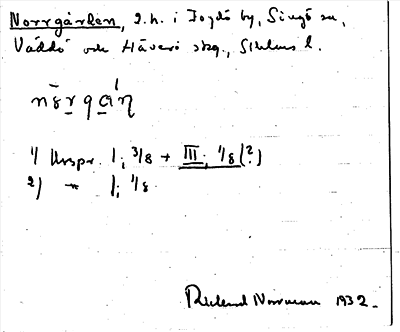 Norrgården, 2.h. i Fogdö by, Singö sn,
Väddö och Häverö skg., Sthlms l.
nŏrgán
1) Urspr. 1; 3/8 + III; 1/8 (?)
2) 1; 1/8.
Rickard Norrman 1932.